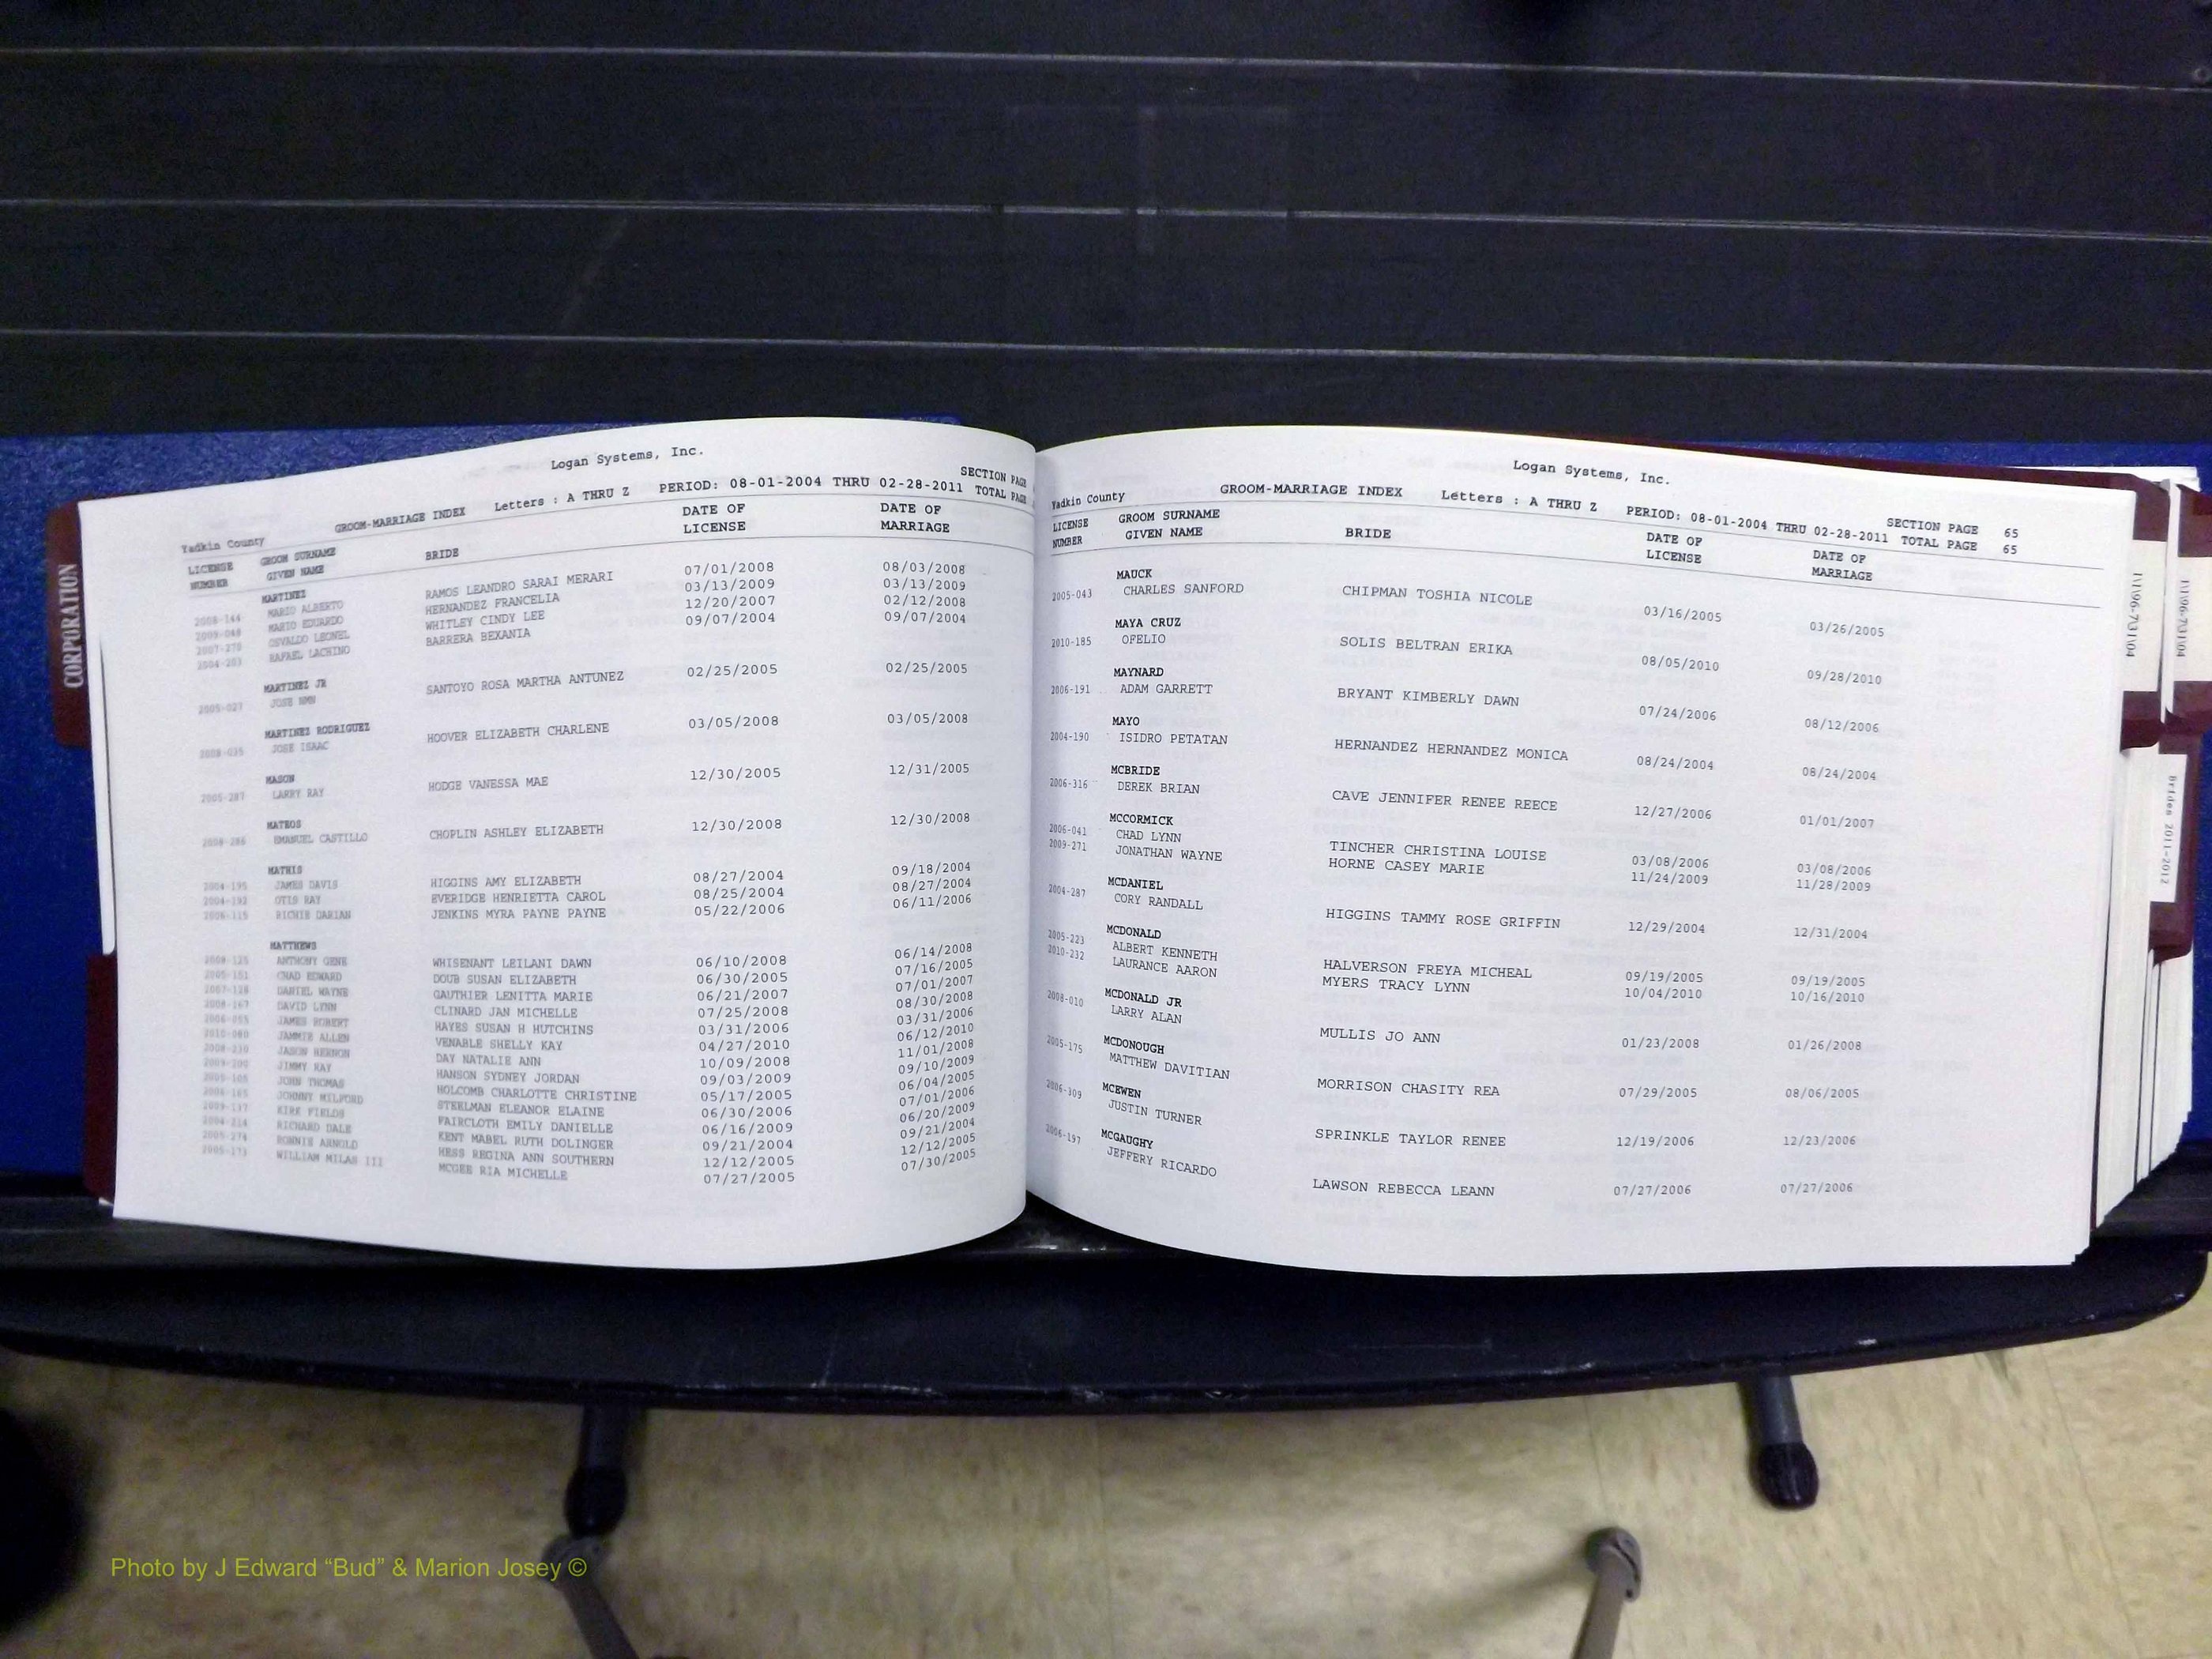 CORPORATION
Logan Systems, Inc.
SECTION PAGE
Yadkin County GROOM-MARRIAGE INDEX Letters : A THRU Z PERIOD: 08-01-2004 THRU 02-28-2011 TOTAL PAGE
LICENSE GROOM SURNAME DATE OF DATE OF
NUMBER GIVEN NAME BRIDE LICENSE MARRIAGE
MARTINEZ
2008-144 MARIO ALBERTO RAMOS LEANDRO SARAI MERARI 07/01/2008 08/03/2008
2009-048 MARIO EDUARDO HERNANDEZ FRANCELIA 03/13/2009 03/13/2009
2007-270 OSVALDO LEONEL WHITLEY CINDY LEE 12/20/2007 02/12/2008
2004-203 RAFAEL LACHINO BARRERA BEXANIA 09/07/2004 09/07/2004
MARTINEZ JR
2005-027 JOSE NMN SANTOYO ROSA MARTHA ANTUNEZ 02/25/2005 02/25/2005
MARTINEZ RODRIGUEZ
2008-035 JOSE ISAAC HOOVER ELIZABETH CHARLENE 03/05/2008 03/05/2008
MASON
2005-287 LARRY RAY HODGE VANESSA MAE 12/30/2005 12/31/2005
MATEOS
2008-286 EMANUEL CASTILLO CHOPLIN ASHLEY ELIZABETH 12/30/2008 12/30/2008
MATHIS
2004-195 JAMES DAVIS HIGGINS AMY ELIZABETH 08/27/2004 09/18/2004
2004-192 OTIS RAY EVERIDGE HENRIETTA CAROL 08/25/2004 08/27/2004
2006-115 RICHIE DARIAN JENKINS MYRA PAYNE PAYNE 05/22/2006 06/11/2006
MATTHEWS
2008-125 ANTHONY GENE WHISENANT LEILANI DAWN 06/10/2008 06/14/2008
2005-151 CHAD EDWARD DOUB SUSAN ELIZABETH 06/30/2005 07/16/2005
2007-128 DANIEL WAYNE GAUTHIER LENITTA MARIE 06/21/2007 07/01/2007
2008-167 DAVID LYNN CLINARD JAN MICHELLE 07/25/2008 08/30/2008
2006-055 JAMES ROBERT HAYES SUSAN H HUTCHINS 03/31/2006 03/31/2006
2010-080 JAMMIE ALLEN VENABLE SHELLY KAY 04/27/2010 06/12/2010
2008-230 JASON HERMON DAY NATALIE ANN 10/09/2008 11/01/2008
2009-200 JIMMY RAY HANSON SYDNEY JORDAN 09/03/2009 09/10/2009
2005-105 JOHN THOMAS HOLCOMB CHARLOTTE CHRISTINE 05/17/2005 06/04/2005
2006-165 JOHNNY MILFORD STEELMAN ELEANOR ELAINE 06/30/2006 07/01/2006
2009-137 KIRK FIELDS FAIRCLOTH EMILY DANIELLE 06/16/2009 06/20/2009
2004-214 RICHARD DALE KENT MABEL RUTH DOLINGER 09/21/2004 09/21/2004
2005-274 RONNIE ARNOLD HESS REGINA ANN SOUTHERN 12/12/2005 12/12/2005
2005-173 WILLIAM MILAS III MCGEE RIA MICHELLE 07/27/2005 07/30/2005
Logan Systems, Inc.
SECTION PAGE 65
Yadkin County GROOM-MARRIAGE INDEX Letters : A THRU Z PERIOD: 08-01-2004 THRU 02-28-2011 TOTAL PAGE 65
LICENSE GROOM SURNAME DATE OF DATE OF
NUMBER GIVEN NAME BRIDE LICENSE MARRIAGE
MAUCK
2005-043 CHARLES SANFORD CHIPMAN TOSHIA NICOLE 03/16/2005 03/26/2005
MAYA CRUZ
2010-185 OFELIO SOLIS BELTRAN ERIKA 08/05/2010 09/28/2010
MAYNARD
2006-191 ADAM GARRETT BRYANT KIMBERLY DAWN 07/24/2006 08/12/2006
MAYO
2004-190 ISIDRO PETATAN HERNANDEZ HERNANDEZ MONICA 08/24/2004 08/24/2004
MCBRIDE
2006-316 DEREK BRIAN CAVE JENNIFER RENEE REECE 12/27/2006 01/01/2007
MCCORMICK
2006-041 CHAD LYNN TINCHER CHRISTINA LOUISE 03/08/2006 03/08/2006
2009-271 JONATHAN WAYNE HORNE CASEY MARIE 11/24/2009 11/28/2009
MCDANIEL
2004-287 CORY RANDALL HIGGINS TAMMY ROSE GRIFFIN 12/29/2004 12/31/2004
MCDONALD
2005-223 ALBERT KENNETH HALVERSON FREYA MICHEAL 09/19/2005 09/19/2005
2010-232 LAURANCE AARON MYERS TRACY LYNN 10/04/2010 10/16/2010
MCDONALD JR
2008-010 LARRY ALAN MULLIS JO ANN 01/23/2008 01/26/2008
MCDONOUGH
2005-175 MATTHEW DAVITIAN MORRISON CHASITY REA 07/29/2005 08/06/2005
MCEWEN
2006-309 JUSTIN TURNER SPRINKLE TAYLOR RENEE 12/19/2006 12/23/2006
MCGAUGHY
2006-197 JEFFERY RICARDO LAWSON REBECCA LEANN 07/27/2006 07/27/2006
1\1\96-7\31\04
1\1\96-7\31\04
Brides 2011-2012
Photo by J Edward “Bud” & Marion Josey ©